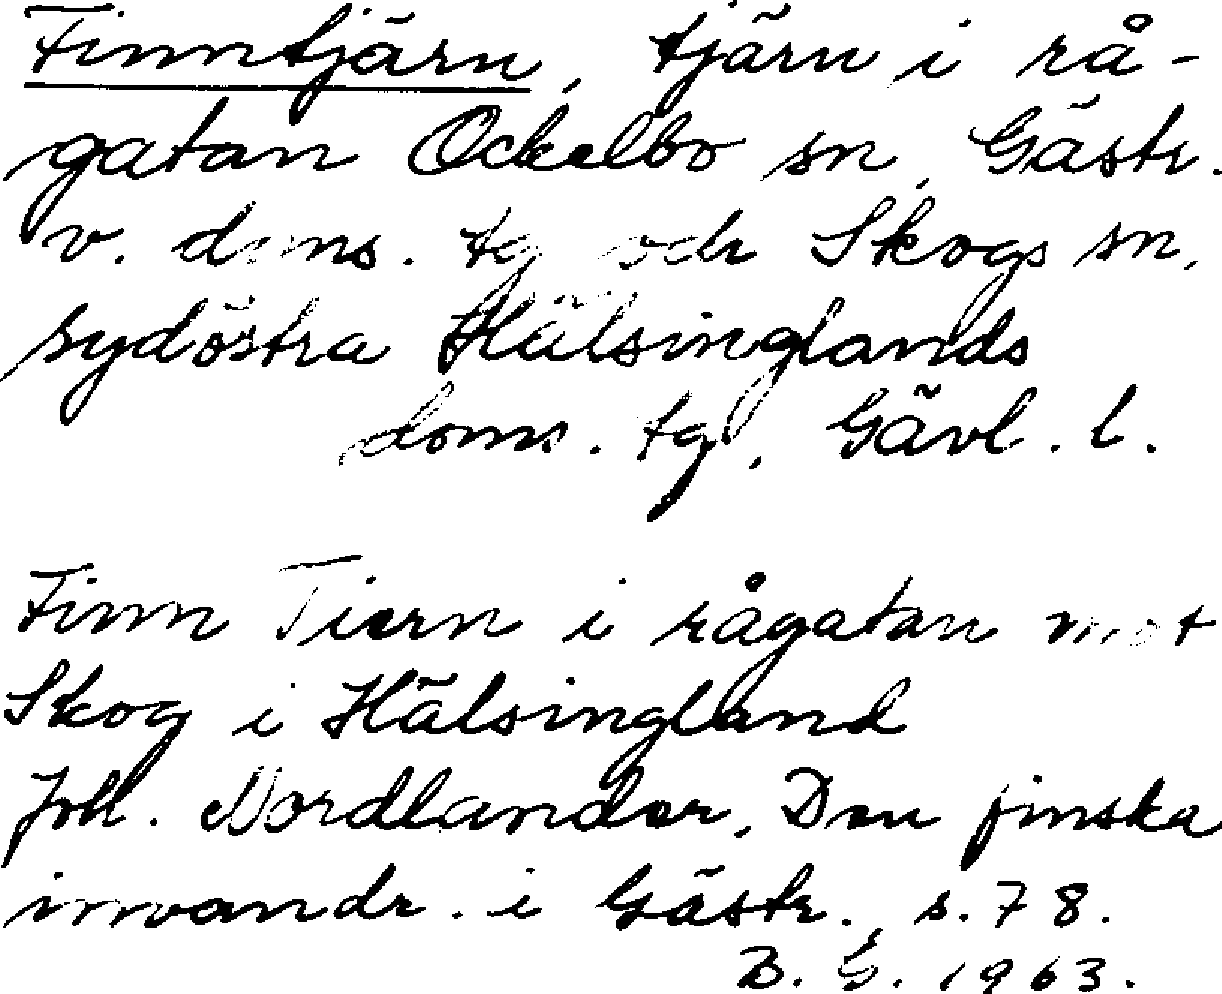 Finntjärn, tjärn i rå-
gatan Ockelbo sn, Gästr.
v. doms. tg och Skogs sn,
sydöstra Hälsinglands
doms. tg, Gävl. l.
Finn Tiern i rågatan mot
Skog i Hälsingland
Joh. Nordlander, Den finska
invandr. i Gästr., s. 78.
B. G. 1963.